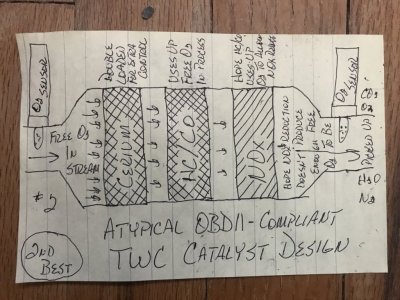 O2 SENSOR
DOUBLE
LOADED
FOR EXTRA
CONTROL
USES UP
FREE O2
IN PROCESS
HOPE HC/CO
USES UP
O2 TO ALLOW
NOX REDUX
O2 SENSOR
FREE O2
IN
STREAM
CERIUM
HC/CO
NOX
HOPE NOX REDUCTION
DOESN'T PRODUCE
ENOUGH FREE
O2 TO BE
PICKED UP
CO2
O2
H2O
N2
# 2
ATYPICAL OBDII-COMPLIANT
TWC CATALYST DESIGN
2ND
BEST